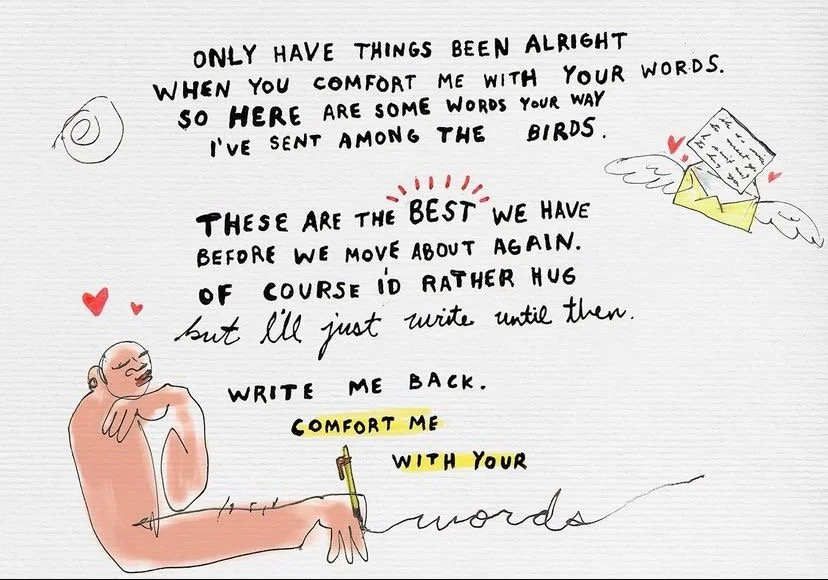 ONLY HAVE THINGS BEEN ALRIGHT
WHEN YOU COMFORT ME WITH YOUR WORDS.
SO HERE ARE SOME WORDS YOUR WAY
I'VE SENT AMONG THE BIRDS.
THESE ARE THE BEST WE HAVE
BEFORE WE MOVE ABOUT AGAIN.
OF COURSE I'D RATHER HUG
but I'll just write until then.
WRITE ME BACK.
COMFORT ME
WITH YOUR
words